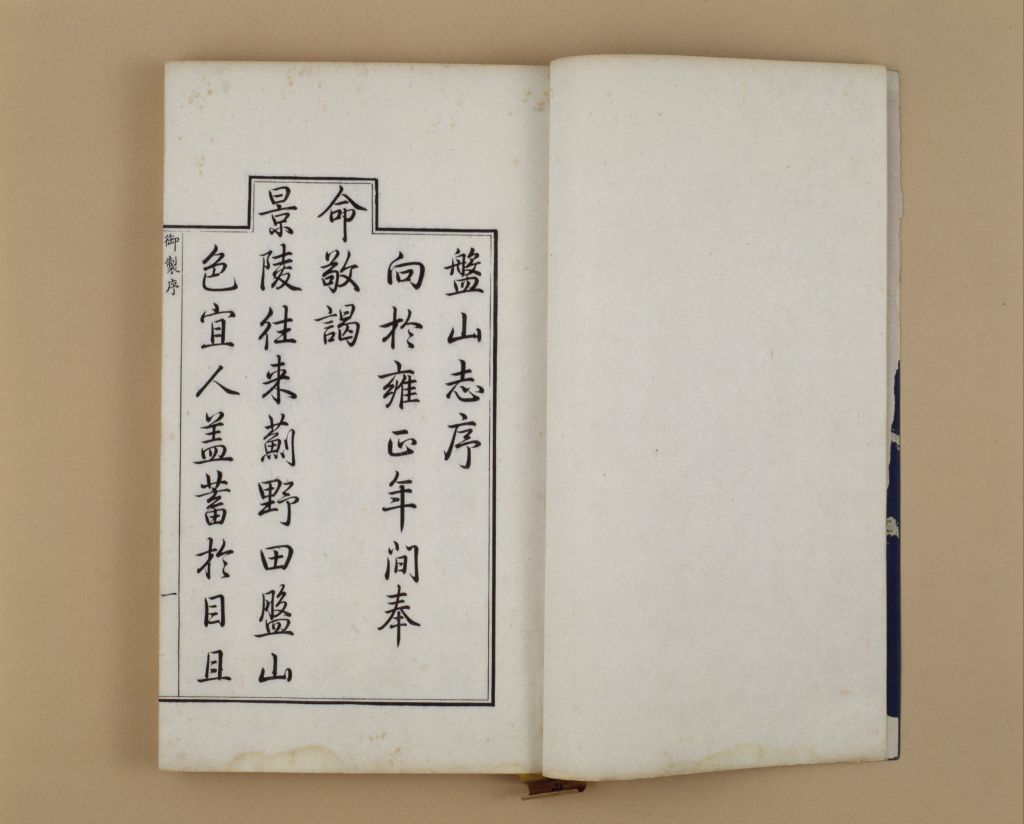 盤山志序
向於雍正年間奉
命敬謁
景陵往来薊野田盤山
色宜人盖蓄於目且
御製序
一